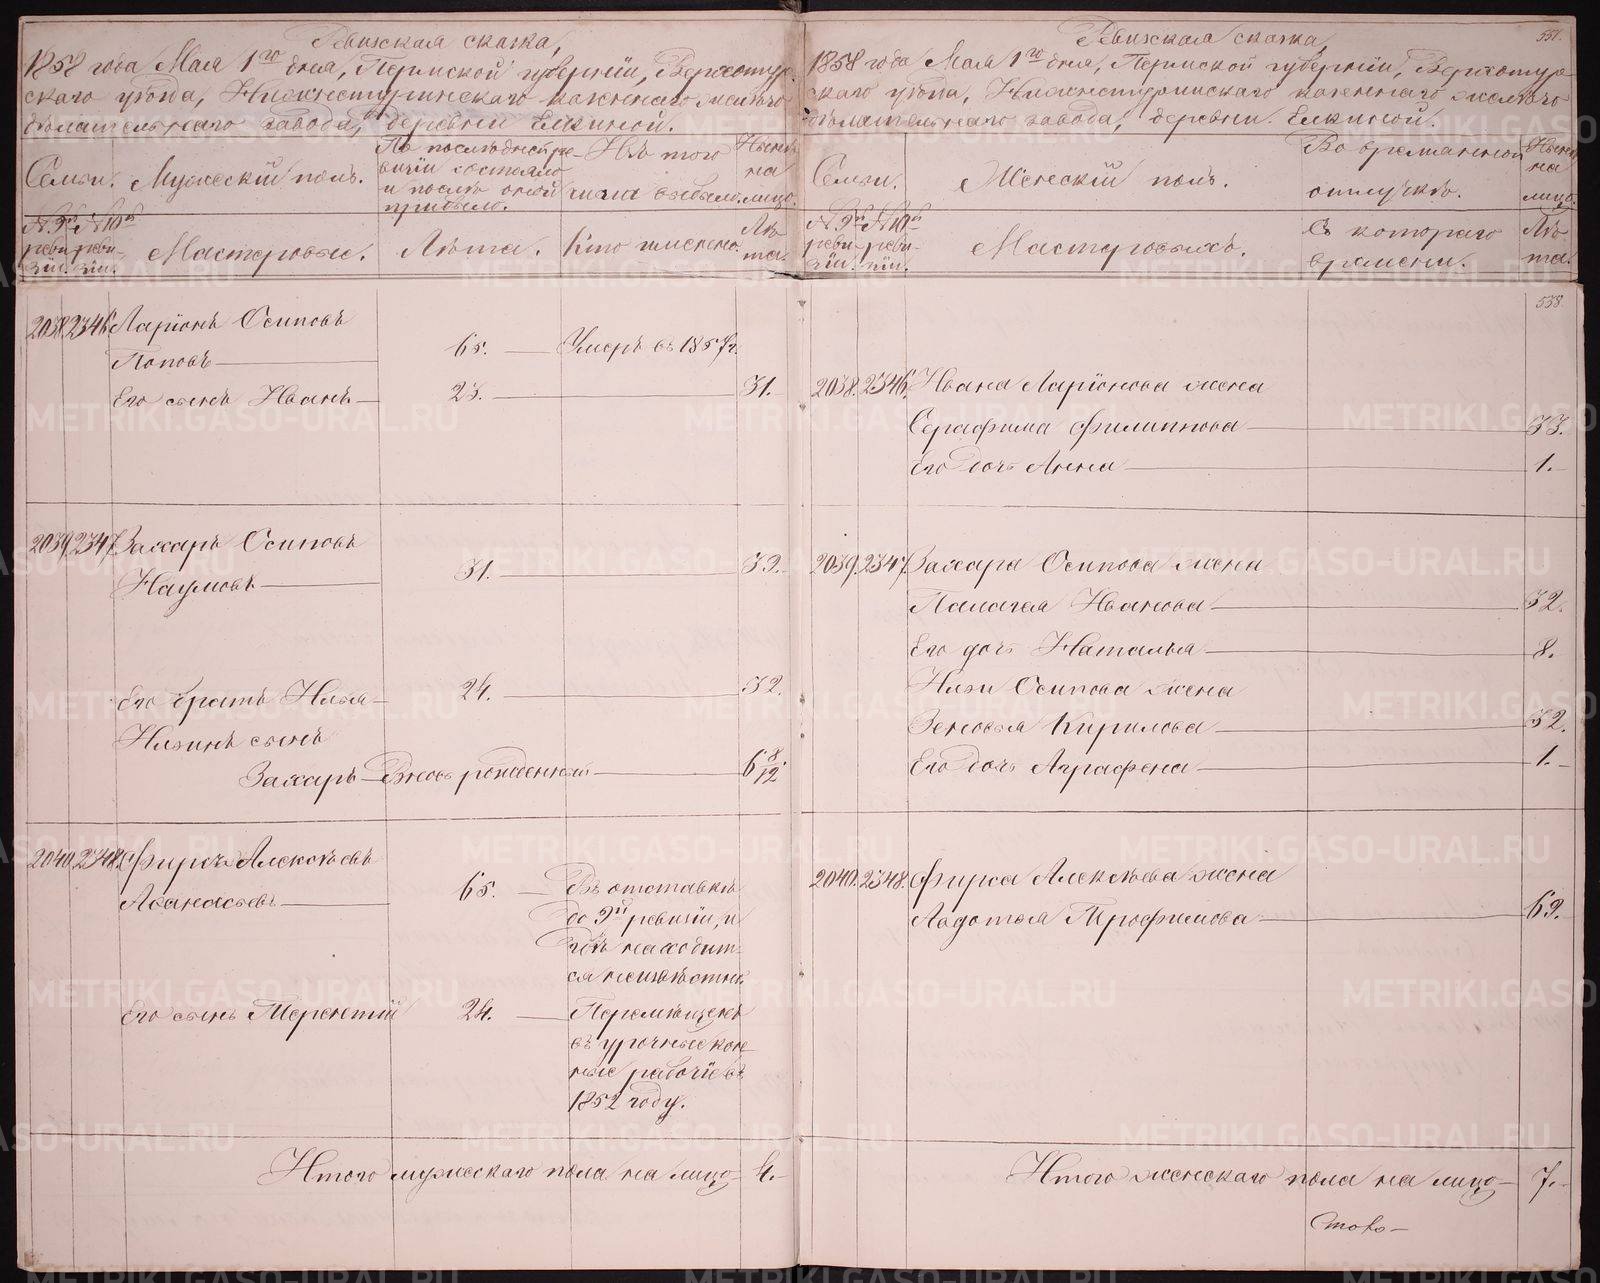 Ревизская сказка,
1858 года Мая 1го дня, Пермской губернiи, Верхотур-
скаго уѣзда, Нижнетуринскаго казеннаго желѣзо-
дѣлательнаго завода, деревни Елкиной.
Семьи. Мужескiй полъ. По послѣдней ре-
визiи состояло
и послѣ оной
прибыло. Изъ того
числа выбыло. Нынѣ
на
лицо.
№ 9й
реви-
зiи. № 10й
реви-
зiи. Мастеровые. Лѣта. Кто именно. Лѣ-
та.
2038. 2346. Ларiонъ Осиповъ
Поповъ 65. Умеръ въ 1857 г.
Его сынъ Иванъ 23. 31.
2039. 2347. Захаръ Осиповъ
Наумовъ 31. 39.
Его братъ Илья 24. 32.
Ильинъ сынъ
Захаръ Вновь рожденный 6 8/12
2040. 2348. Фирсъ Алексѣевъ
Аѳанасьевъ 65. Въ отставкѣ
до 9й ревизiи, и
гдѣ находит-
ся неизвѣстно.
Его сынъ Терентiй 24. Перемѣщенъ
въ урочные кон-
ные рабочiе въ
1852 году.
Итого мужескаго пола на лицо 4.
551.
Ревизская сказка,
1858 года Мая 1го дня, Пермской губернiи, Верхотур-
скаго уѣзда, Нижнетуринскаго казеннаго желѣзо-
дѣлательнаго завода, деревни Елкиной.
Семьи. Женскiй полъ. Во временной
отлучкѣ. Нынѣ
на
лицо.
№ 9й
реви-
зiи. № 10й
реви-
зiи. Мастеровыхъ. Съ котораго
времени. Лѣ-
та.
538
2038. 2346. Ивана Ларiонова жена
Серафима Филиппова 33.
Его дочь Анна 1.
2039. 2347. Захара Осипова жена
Палагея Иванова 32.
Его дочь Наталья 8.
Ильи Осипова жена
Зеновья Кирилова 32.
Его дочь Аграфена 1.
2040. 2348. Фирса Алексѣева жена
Авдотья Трофимова 69.
Итого женскаго пола на лицо 7.
METRIKI.GASO-URAL.RU